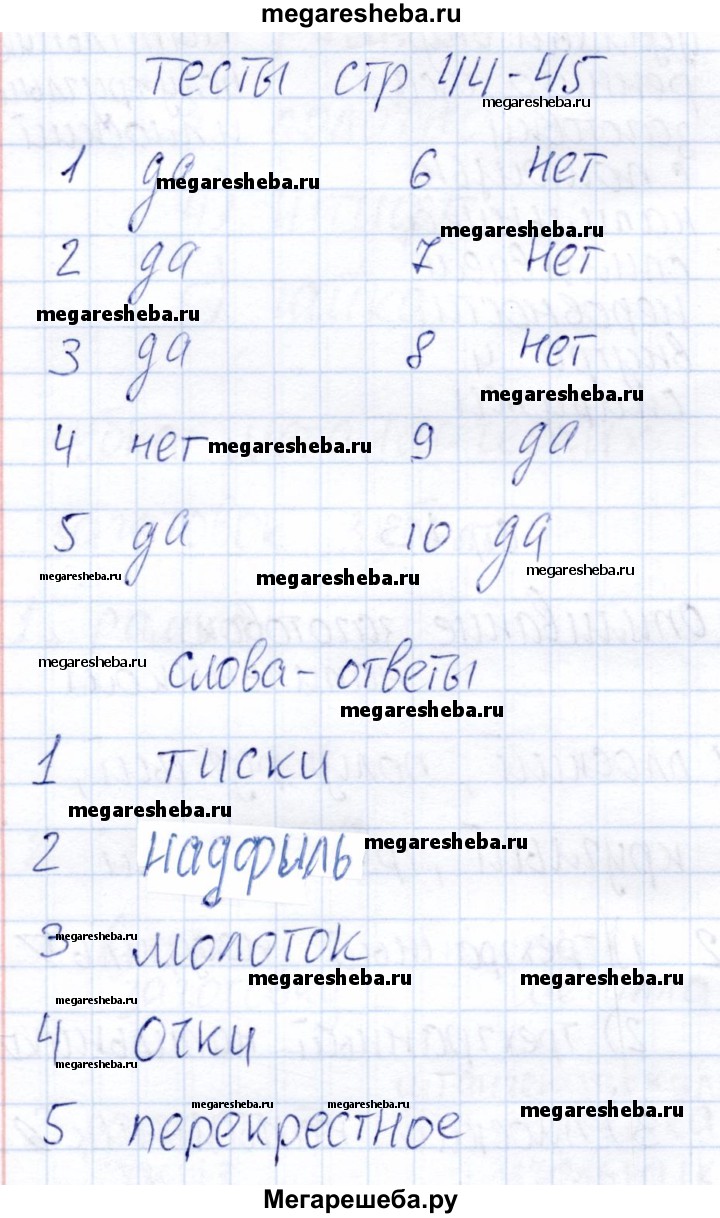 megaresheba.ru
тесты стр 44-45
megaresheba.ru
1 да 6 нет
megaresheba.ru
megaresheba.ru
2 да 7 нет
megaresheba.ru
3 да 8 нет
megaresheba.ru
4 нет megaresheba.ru 9 да
5 да 10 да
megaresheba.ru megaresheba.ru megaresheba.ru
megaresheba.ru слова-ответы
megaresheba.ru
1 тиски
megaresheba.ru
2 надфиль megaresheba.ru
3 megaresheba.ru молоток
megaresheba.ru megaresheba.ru
megaresheba.ru
4 очки
megaresheba.ru
megaresheba.ru megaresheba.ru megaresheba.ru
5 перекрестное
Мегарешеба.ру